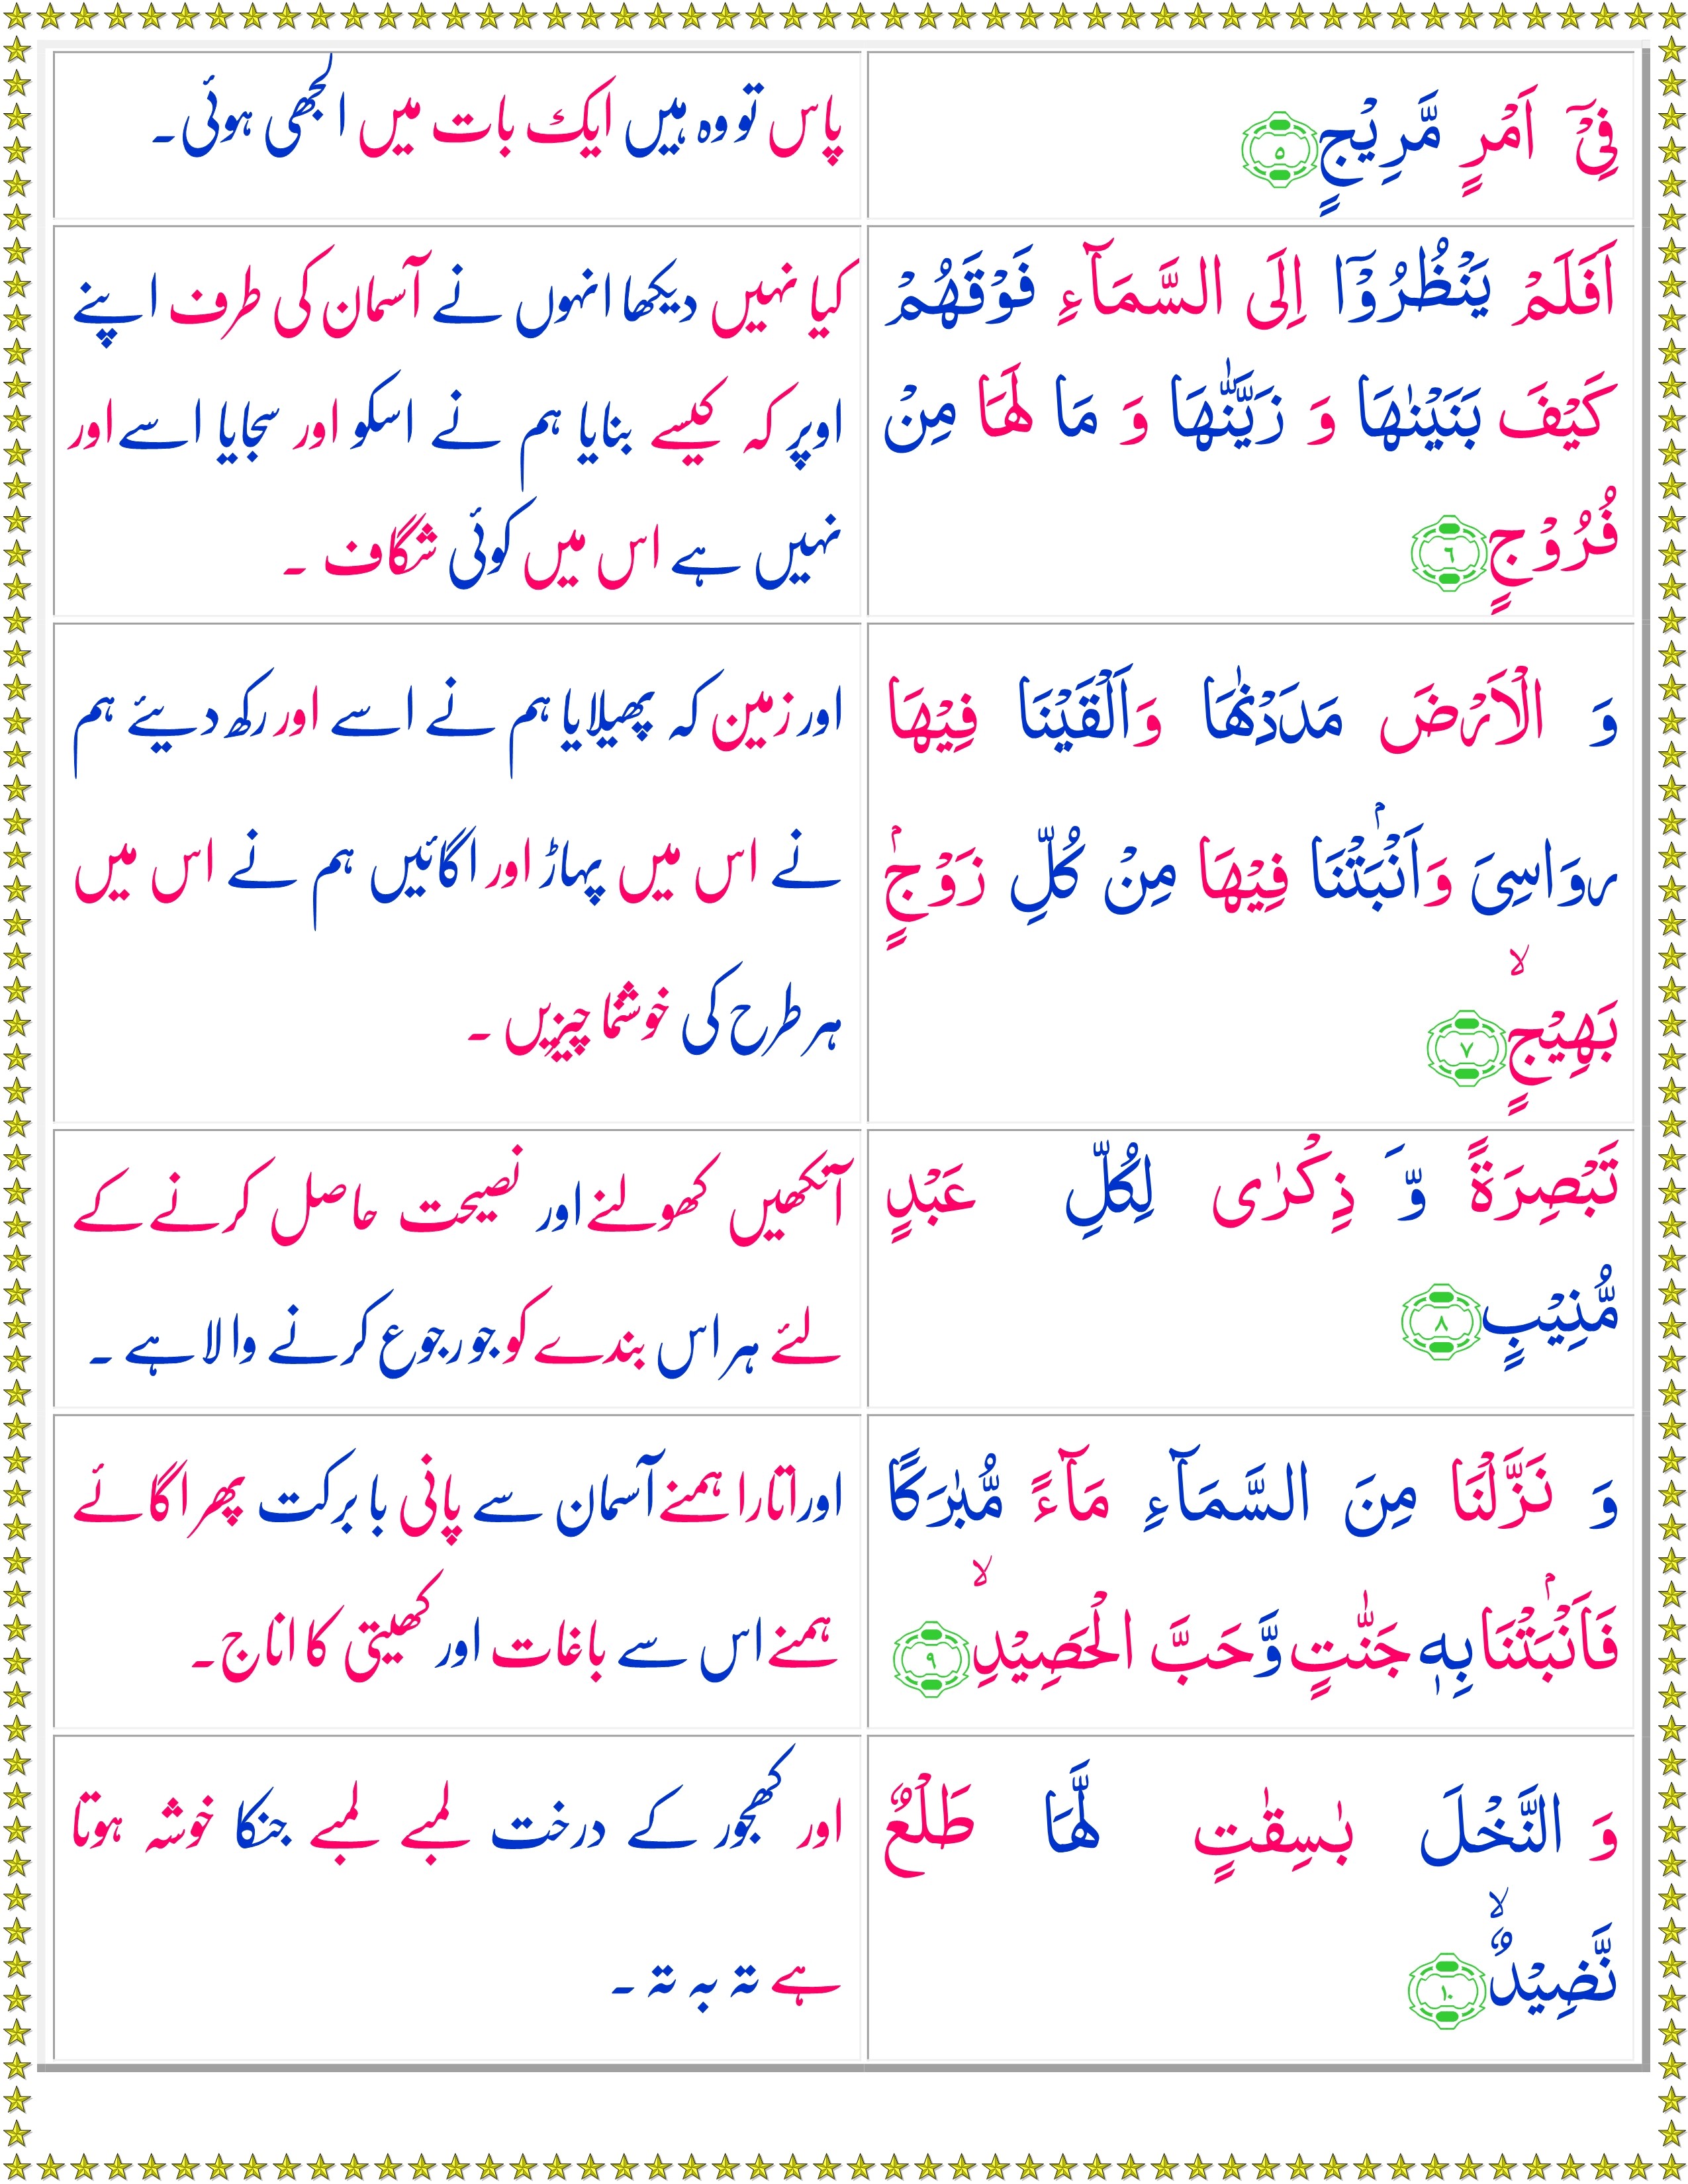 فِیْۤ اَمْرٍ مَّرِیْجٍ ٥
پاس تو وہ ہیں ایک بات میں الجھی ہوئی۔
اَفَلَمْ یَنْظُرُوْۤا اِلَی السَّمَآءِ فَوْقَهُمْ
كَیْفَ بَنَیْنٰهَا وَ زَیَّنّٰهَا وَ مَا لَهَا مِنْ
فُرُوْجٍ ٦
کیا نہیں دیکھا انہوں نے آسمان کی طرف اپنے
اوپر کہ کیسے بنایا ہم نے اسکو اور سجایا اسے اور
نہیں ہے اس میں کوئی شگاف ۔
وَ الْاَرْضَ مَدَدْنٰهَا وَاَلْقَیْنَا فِیْهَا
رَوَاسِیَ وَاَنْۢبَتْنَا فِیْهَا مِنْ كُلِّ زَوْجٍۭ
بَهِیْجٍۙ ٧
اور زمین کہ پھیلایا ہم نے اسے اور رکھ دیئے ہم
نے اس میں پہاڑ اور اگائیں ہم نے اس میں
ہر طرح کی خوشنما چیزیں ۔
تَبْصِرَةً وَّ ذِكْرٰی لِكُلِّ عَبْدٍ
مُّنِیْبٍ ٨
آنکھیں کھولنے اور نصیحت حاصل کرنے کے
لئے ہر اس بندے کو جو رجوع کرنے والا ہے ۔
وَ نَزَّلْنَا مِنَ السَّمَآءِ مَآءً مُّبٰرَكًا
فَاَنْۢبَتْنَا بِهٖ جَنّٰتٍ وَّحَبَّ الْحَصِیْدِۙ ٩
اور اتارا ہمنے آسمان سے پانی با برکت پھر اگائے
ہمنے اس سے باغات اور کھیتی کا اناج۔
وَ النَّخْلَ بٰسِقٰتٍ لَّهَا طَلْعٌ
نَّضِیْدٌۙ ١٠
اور کھجور کے درخت لمبے لمبے جنکا خوشہ ہوتا
ہے تہ بہ تہ ۔